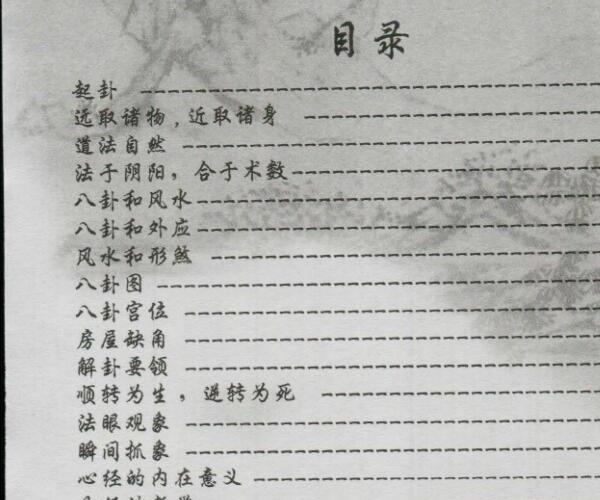 目录
起卦 ----------------------
远取诸物，近取诸身 ----------------------
道法自然 ----------------------
法于阴阳，合于术数----------------------
八卦和风水----------------------
八卦和外应----------------------
风水和形煞 ----------------------
八卦图 ----------------------
八卦宫位 ----------------------
房屋缺角 ----------------------
解卦要领 ----------------------
顺转为生，逆转为死 ----------------------
法眼观象 ----------------------
瞬间抓象 ----------------------
心经的内在意义 ----------------------